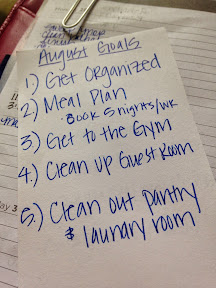 August Goals
1.) Get Organized
2.) Meal Plan
- Book 5 nights/wk
3.) Get to the Gym
4.) Clean up Guest Room
5.) Clean out pantry
& laundry room